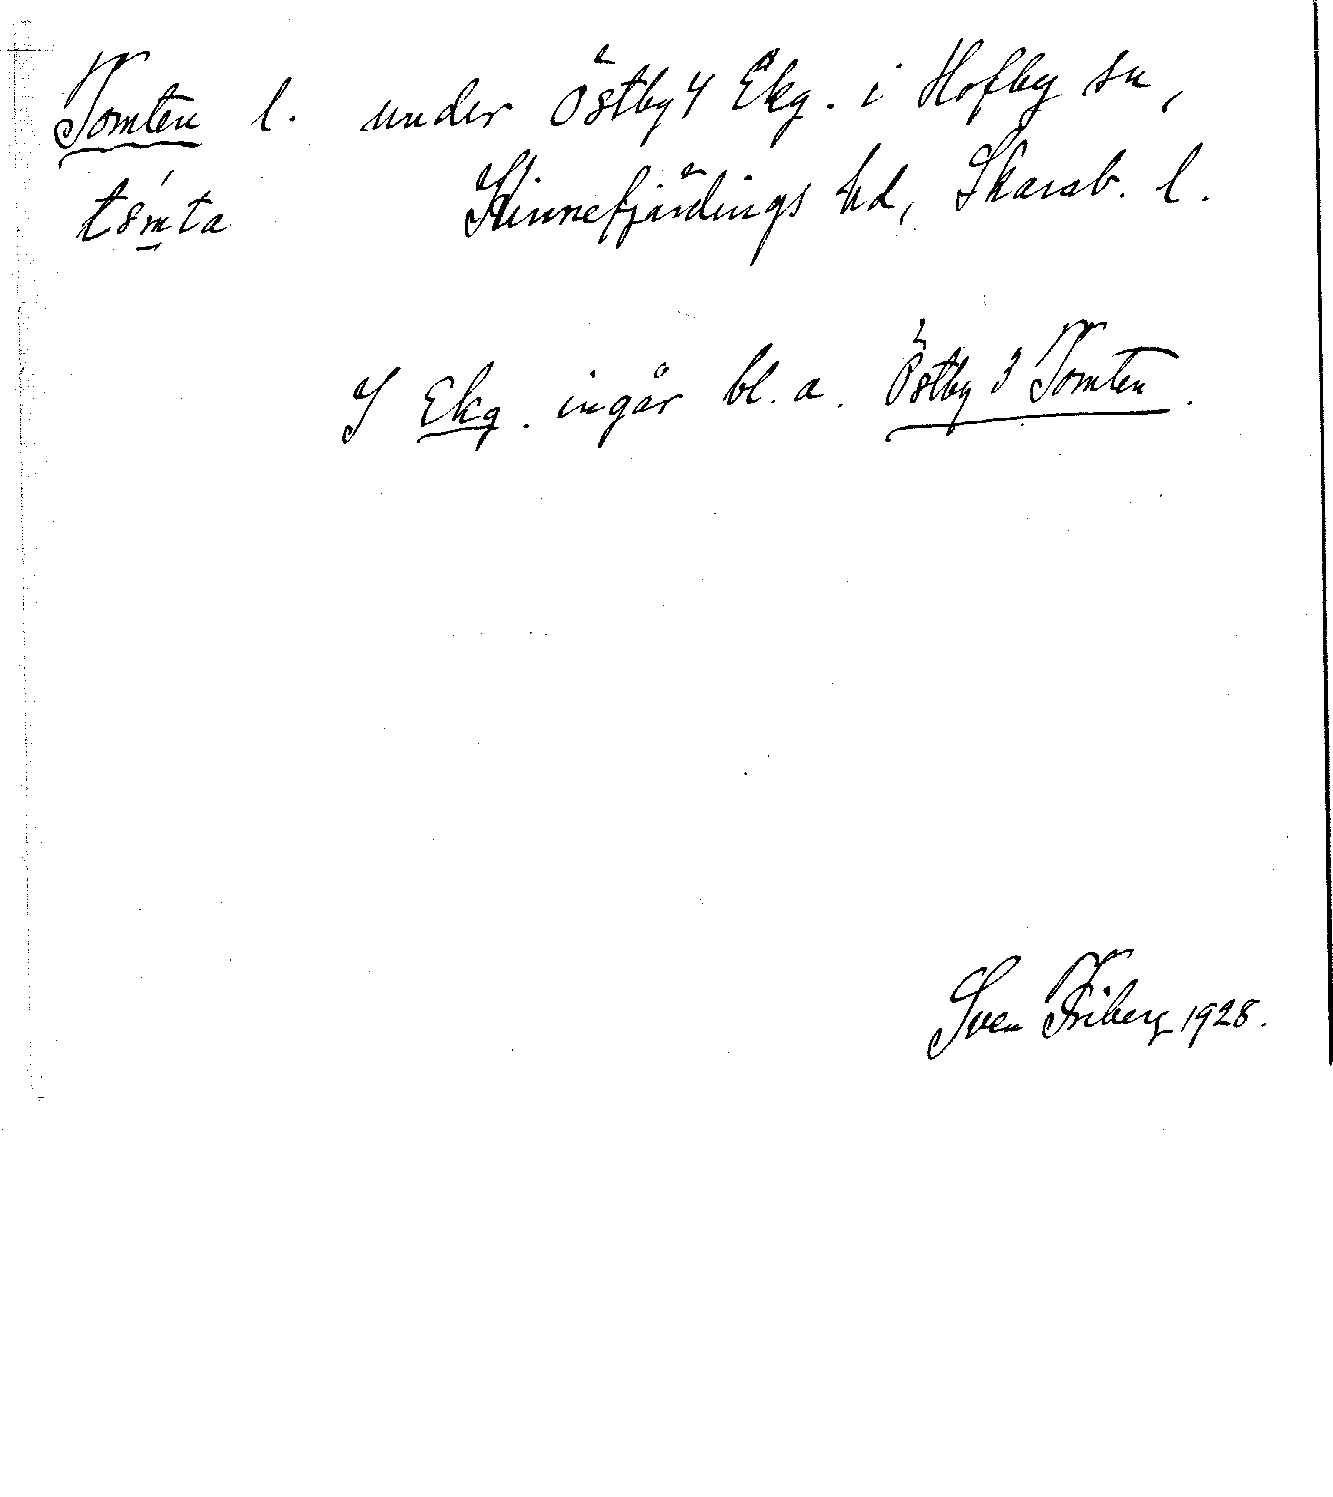 Tomten l. under Östby 4 Ekg. i Hofby sn,
Kinnefjärdings hd, Skarab. l.
I Ekg. ingår bl. a. Östby 3 Tomten.
Sven Friberg 1928.